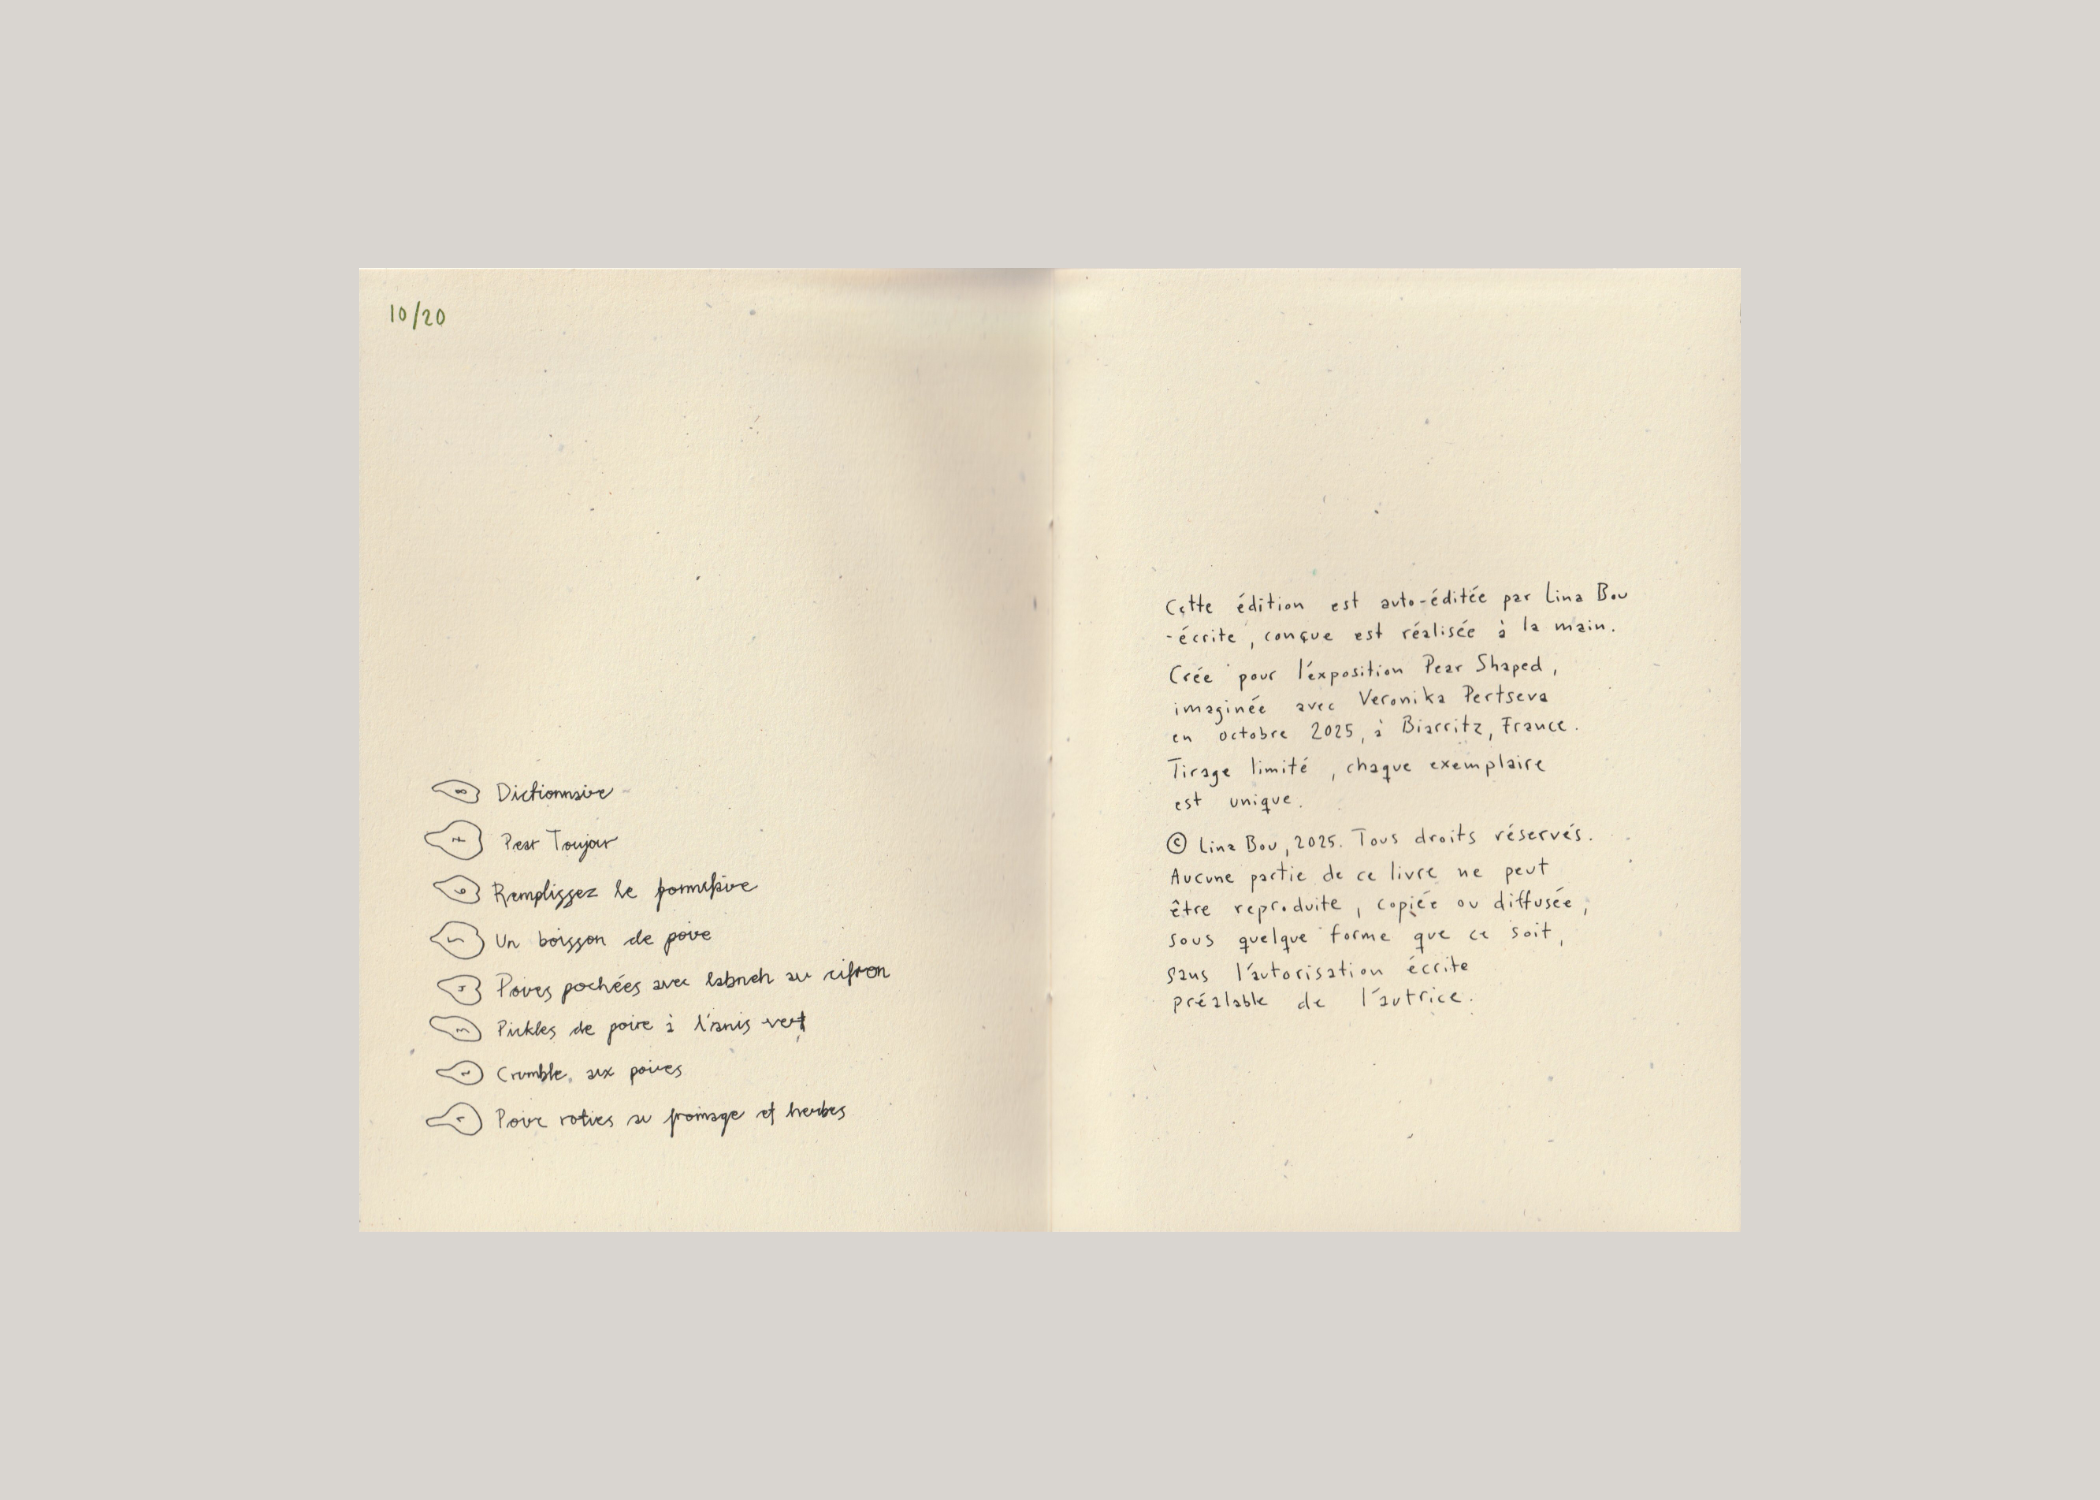 10/20
8 Dictionnaire
7 Pear Toujour
6 Remplissez le formulaire
5 Un boisson de poire
4 Poires pochées avec labneh au citron
3 Pickles de poire à l'anis vert
2 Crumble aux poires
1 Poire roties au fromage et herbes
Cette édition est auto-éditée par Lina Bou
-écrite, conçue est réalisée à la main.
Crée pour l'éxposition Pear Shaped,
imaginée avec Veronika Pertseva
en octobre 2025, à Biarritz, France.
Tirage limité, chaque exemplaire
est unique.
© Lina Bou, 2025. Tous droits réservés.
Aucune partie de ce livre ne peut
être reproduite, copiée ou diffusée,
sous quelque forme que ce soit,
sans l'autorisation écrite
préalable de l'autrice.